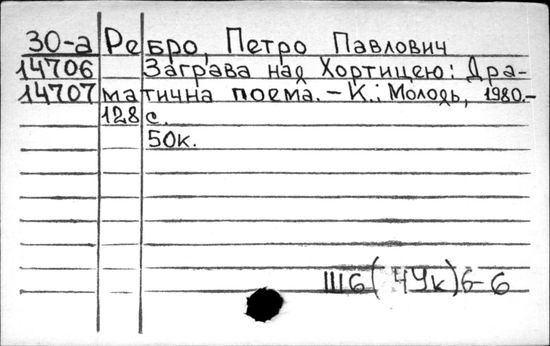 30-а Ребро, Петро Павлович
14706 Заграва над Хортицею: Дра-
14707 матична поема. – К.: Молодь, 1980.-
128 с.
50к.
Ш6(4Ук)6-6